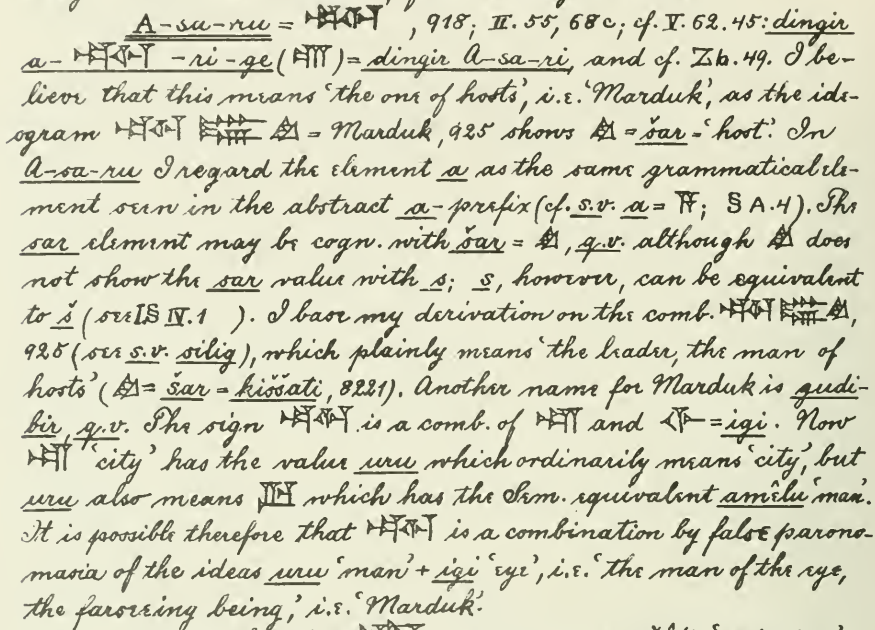 A-su-ru = 𒌷𒅆, 918; II. 55, 68c; cf. V. 62. 45: dingir
a-𒌷𒅆-ri-ge (𒆤) = dingir A-sa-ri, and cf. Zb. 49. I be-
lieve that this means 'the one of hosts', i.e. 'Marduk', as the ide-
ogram = Marduk, 925 shows = šar = 'host'. In
A-sa-ru I regard the element a as the same grammatical ele-
ment seen in the abstract a-prefix (cf. s.v. a = 𒀀; § A. 4). The
sar element may be cogn. with šar = , q.v. although does
not show the sar value with s; s, however, can be equivalent
to š (see § IV. 1 ). I base my derivation on the comb. ,
925 (see s.v. silig), which plainly means 'the leader, the man of
hosts' ( = šar = kiššati, 8221). Another name for Marduk is gudi-
bir, q.v. The sign 𒌷𒅆 is a comb. of 𒌷 and 𒅆 = igi. Now
𒌷 'city' has the value uru which ordinarily means 'city', but
uru also means which has the Sem. equivalent amêlu 'man'.
It is possible therefore that 𒌷𒅆 is a combination by false parono-
masia of the ideas uru 'man' + igi 'eye', i.e. 'the man of the eye,
the farseeing being,' i.e. 'Marduk'.